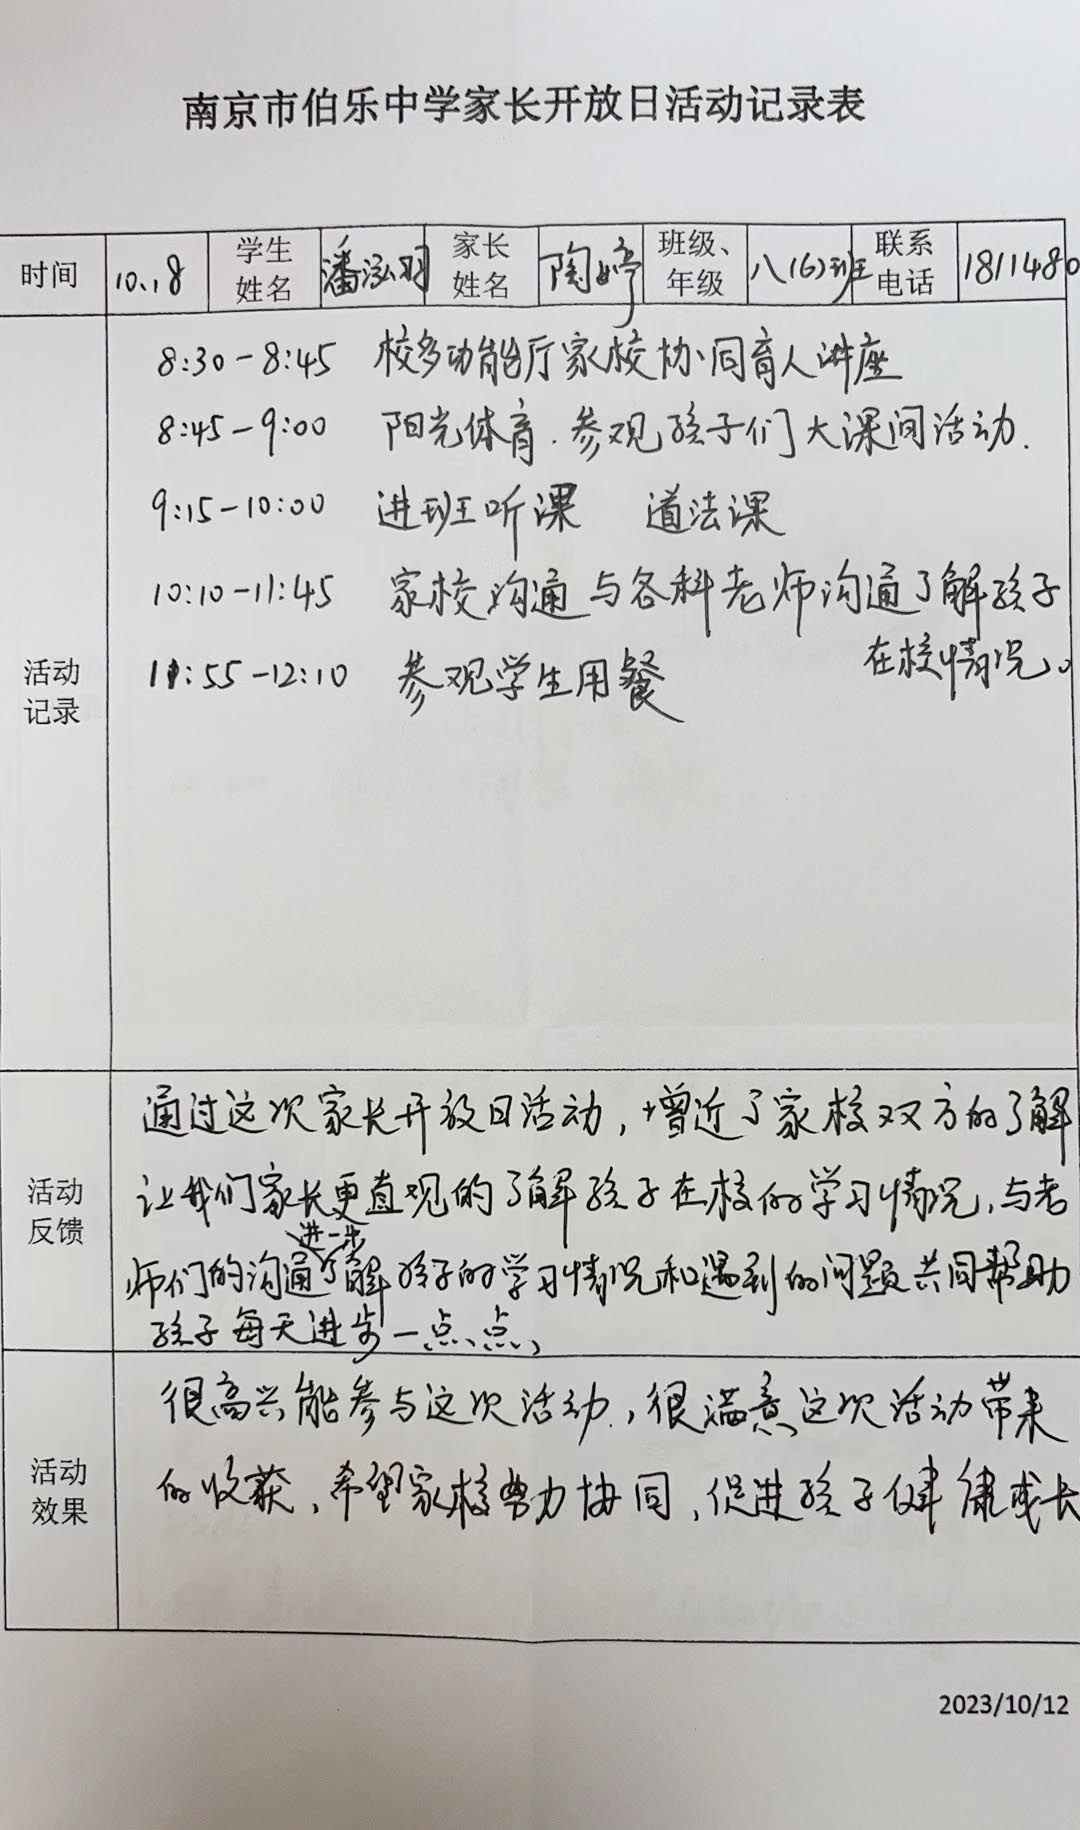 南京市伯乐中学家长开放日活动记录表
时间 10.18 学生姓名 潘泓羽 家长姓名 陶婷 班级、年级 八(6)班 联系电话 1811480
活动记录
8:30-8:45 校多功能厅家校协同育人讲座
8:45-9:00 阳光体育.参观孩子们大课间活动.
9:15-10:00 进班听课 道法课
10:10-11:45 家校沟通与各科老师沟通了解孩子
在校情况。
11:55-12:10 参观学生用餐
活动反馈
通过这次家长开放日活动,增近了家校双方的了解
让我们家长更直观的了解孩子在校的学习情况,与老
师们的沟通进一步了解孩子的学习情况和遇到的问题共同帮助
孩子每天进步一点点、
活动效果
很高兴能参与这次活动,很满意这次活动带来
的收获,希望家校努力协同,促进孩子健康成长
2023/10/12